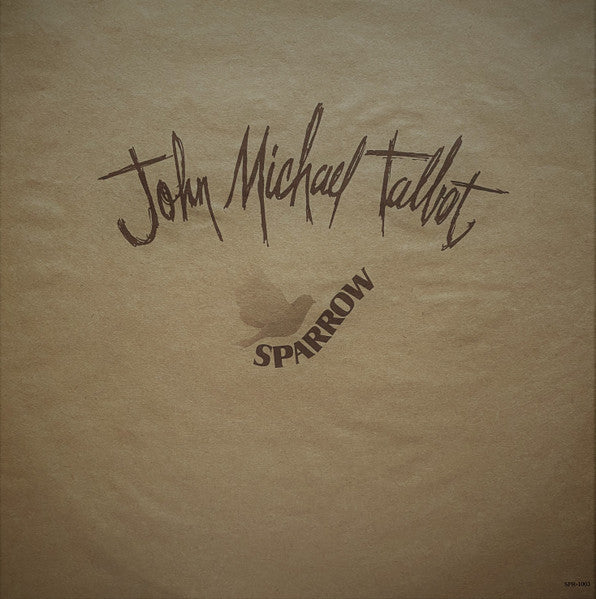 John Michael Talbot
SPARROW
SPR-1003